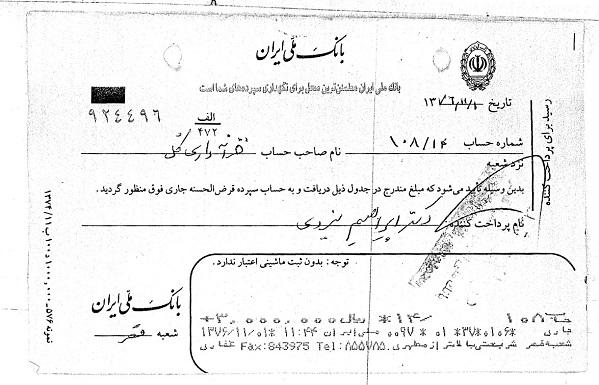 بانک ملی ایران
بانک ملی ایران مطمئن‌ترین محل برای نگهداری سپرده‌های شما است
تاریخ ۱۳۷۶/۱۱/۱
رسید برای پرداخت کننده
۹۲۴۴۹۶
الف
۴۷۲
شماره حساب ۱۰۸/۱۴ نام صاحب حساب خزانه داری کل
نزد شعبه
بدین وسیله تأیید می‌شود که مبلغ مندرج در جدول ذیل دریافت و به حساب سپرده قرض‌الحسنه جاری فوق منظور گردید.
نام پرداخت کننده دکتر ابراهیم یزدی
توجه: بدون ثبت ماشینی اعتبار ندارد.
بانک ملی ایران
شعبه قصر
۱۰۸ *۱۴/ ریال ۳,۰۰۰,۰۰۰*
جاری *۰۱۰۶*۳۷* ۰۱ ۰۰۹۷ ملی ایران ۱۱:۴۴ ۱۳۷۶/۱۱/۰۱
شعبه قصر شریعتی بالاتر از مطهری Tel:۸۵۵۷۸۵ Fax:843975 غفاری